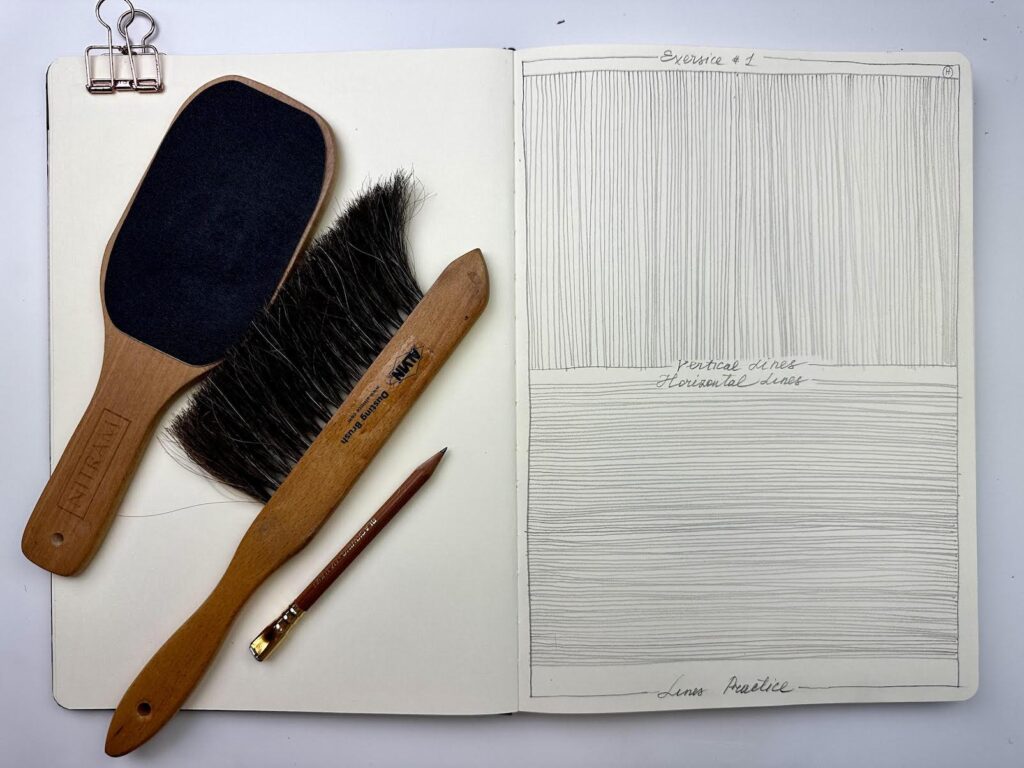 Exersice # 1
H
Vertical Lines
Horizontal Lines
Lines Practice
NITRAM
ALVIN
Dusting Brush